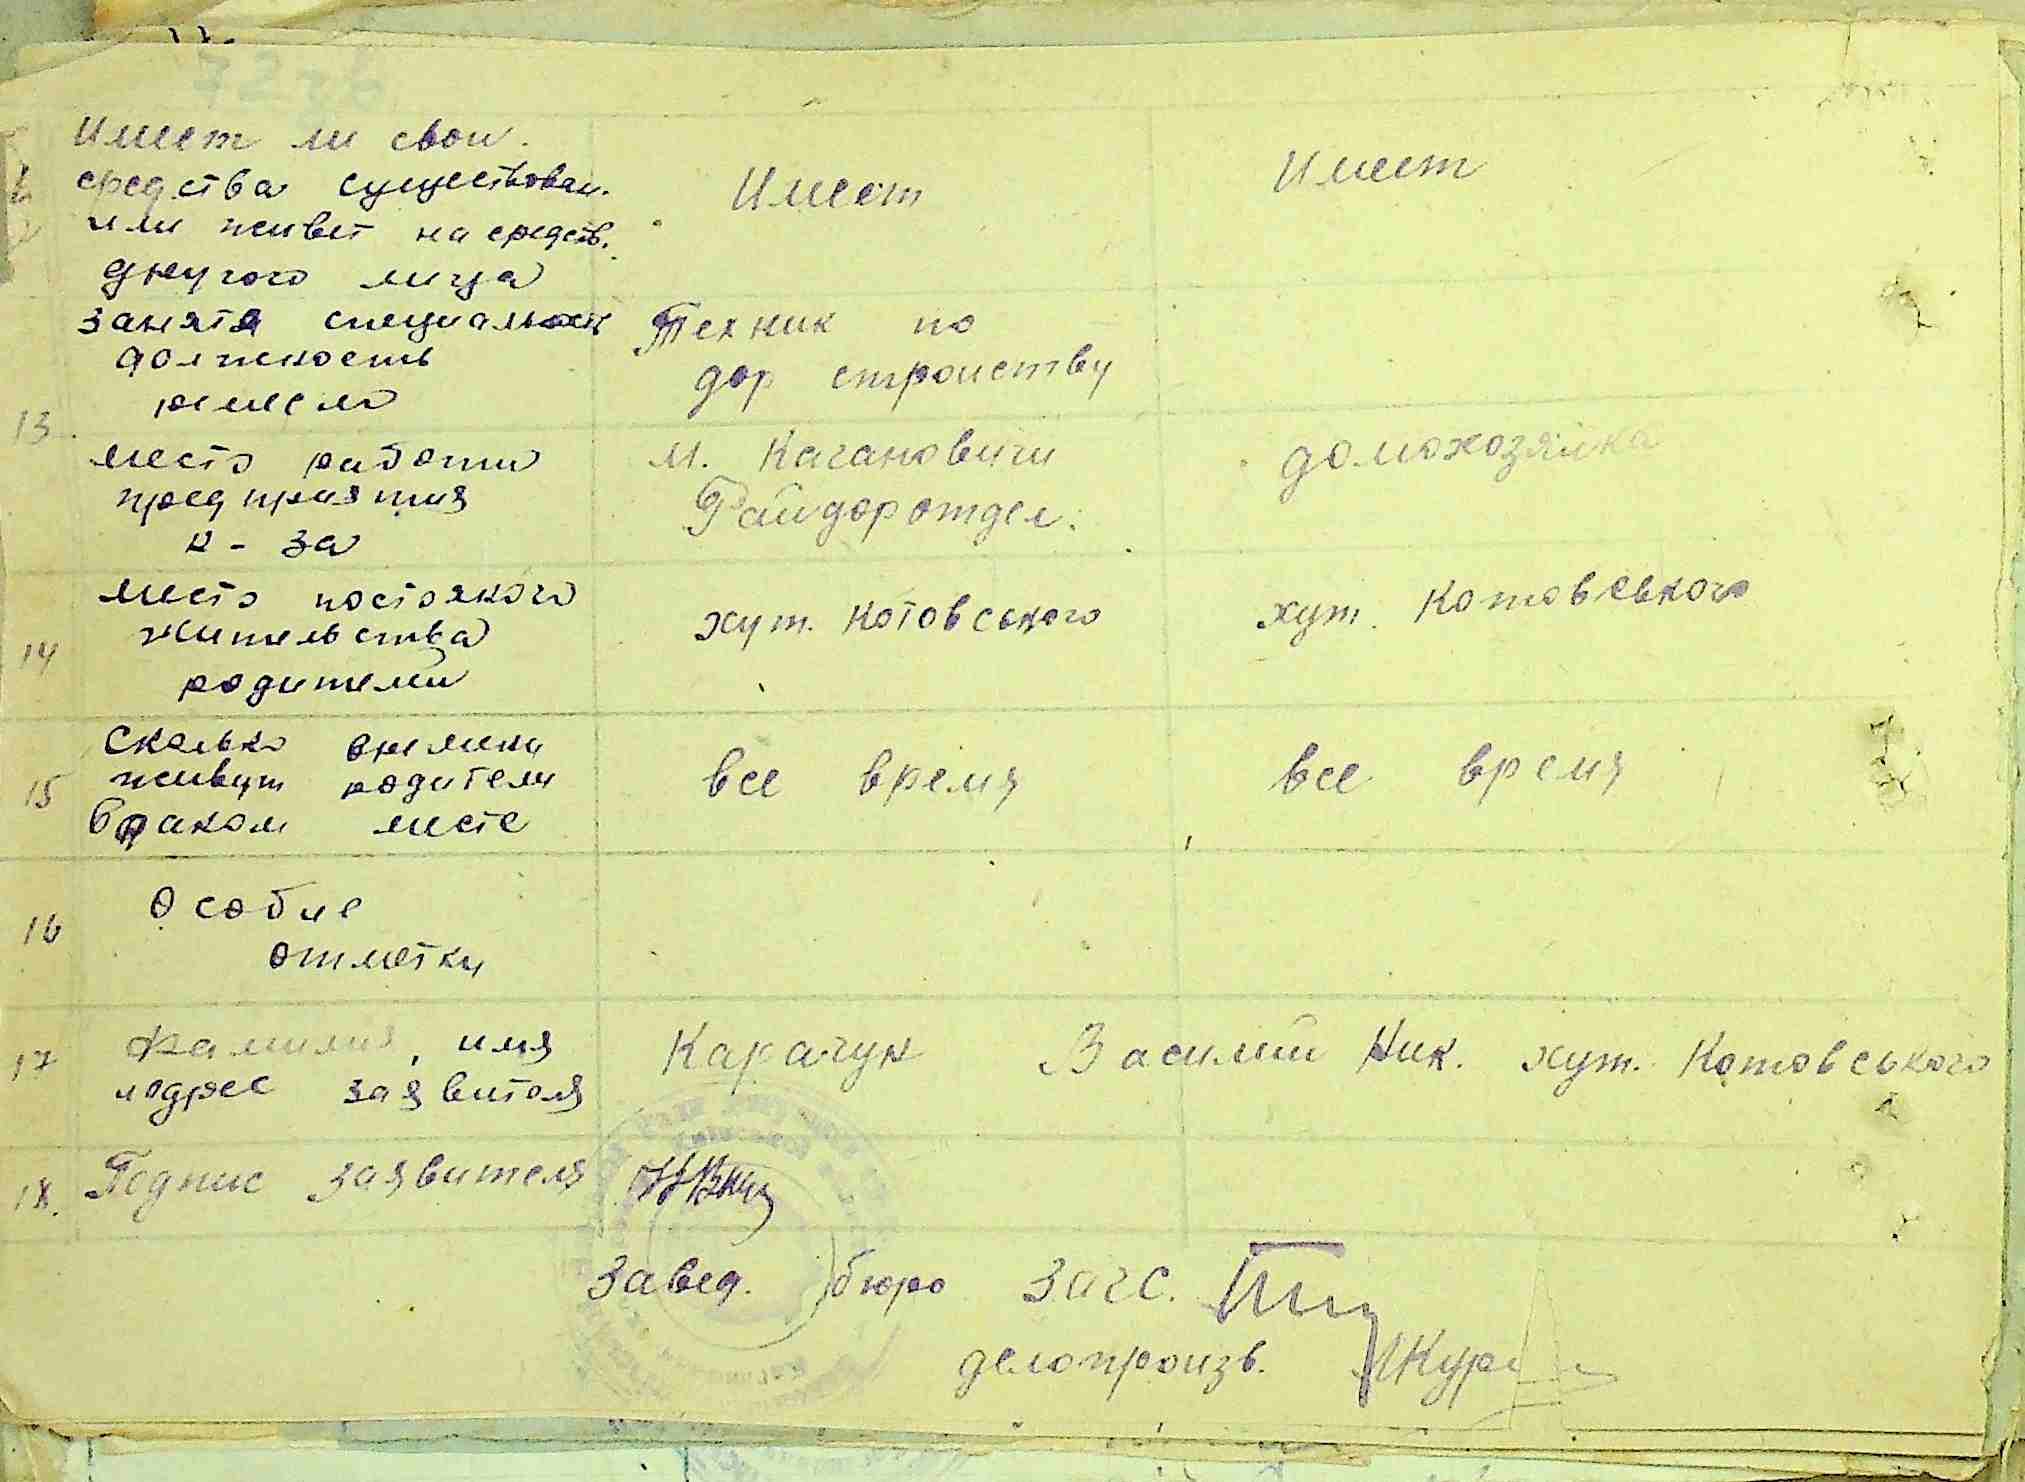 Имеет ли свои
средства существован.
или живет на средств.
другого лица
Имеет
Имеет
занятя специальность
должность
ремесло
Техник по
дор строиству
13
место работи
предприятия
к-за
М. Кагановичи
Райдоротдел.
домохозяйка
14
место постояного
жительства
родители
хут. Котовського
хут. Котовського
15
сколько времени
живут родители
в даком месте
все время
все время
16
Особие
отметки
17
Фамилия, имя
адрес заявителя
Карачун Василий Ник. хут. Котовського
18.
Подпис заявителя
Завед. бюро Загс.
делопроизв.